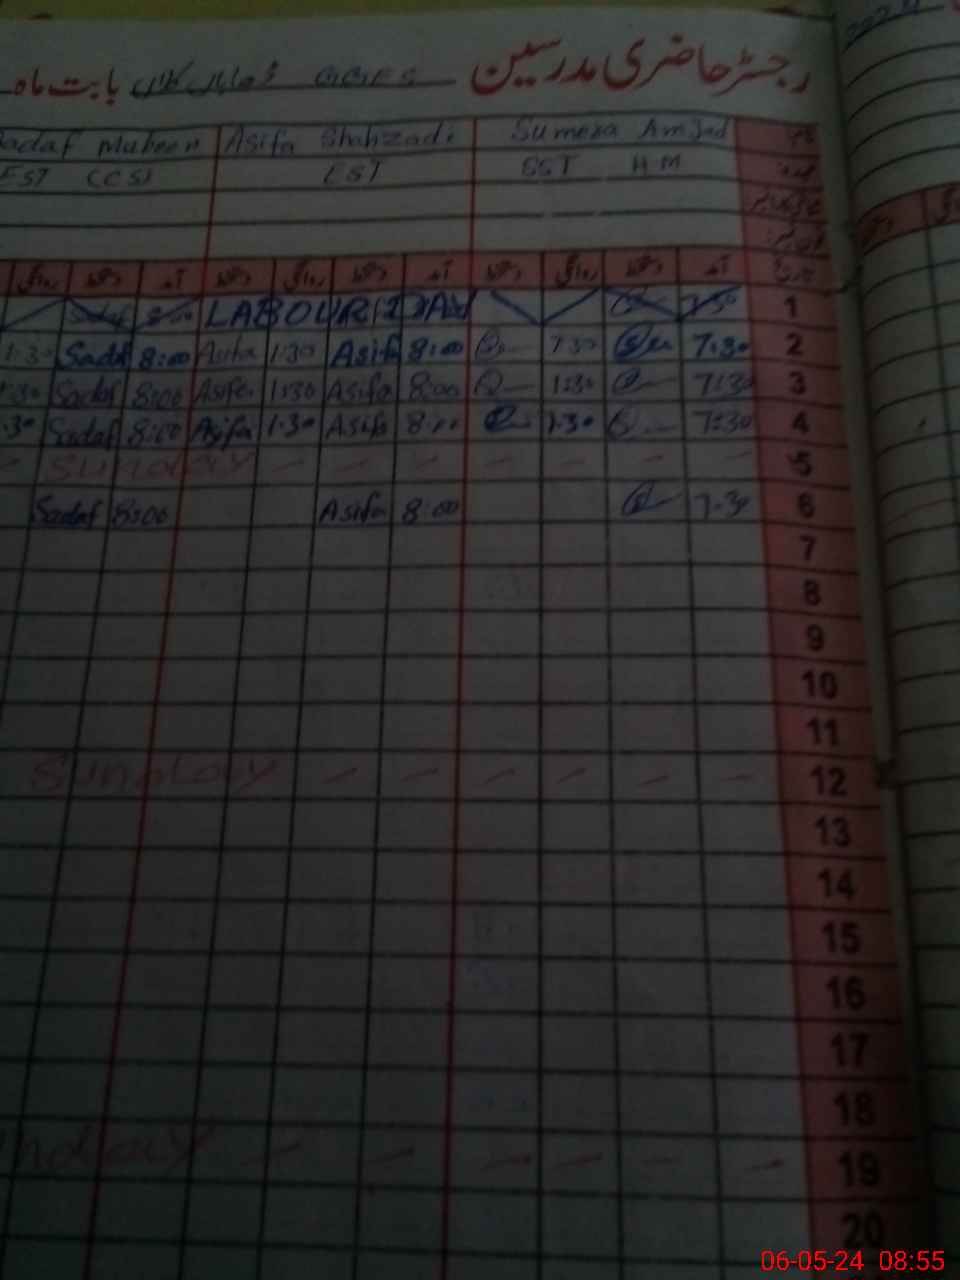 رجسٹر حاضری مدرسین GGES کلاں بابت ماہ
Sumera Amjad Asifa Shahzadi Sadaf Mubeen
SST HM EST EST (CS)
آمد دستخط روانگی دستخط آمد دستخط روانگی دستخط آمد دستخط روانگی
1 7:30 LABOUR DAY 8:00 Sadaf
2 7:30 7:30 8:00 Asifa 1:30 Asifa 8:00 Sadaf 1:30
3 7:30 1:30 8:00 Asifa 1:30 Asifa 8:00 Sadaf 1:30
4 7:30 1:30 8:00 Asifa 1:30 Asifa 8:00 Sadaf :30
5 - - - - - - Sunday -
6 7:30 8:00 Asifa 8:00 Sadaf
7
8
9
10
11
12 - - - - - - Sunday
13
14
15
16
17
18
19 - - - - - - nday
20
06-05-24 08:55